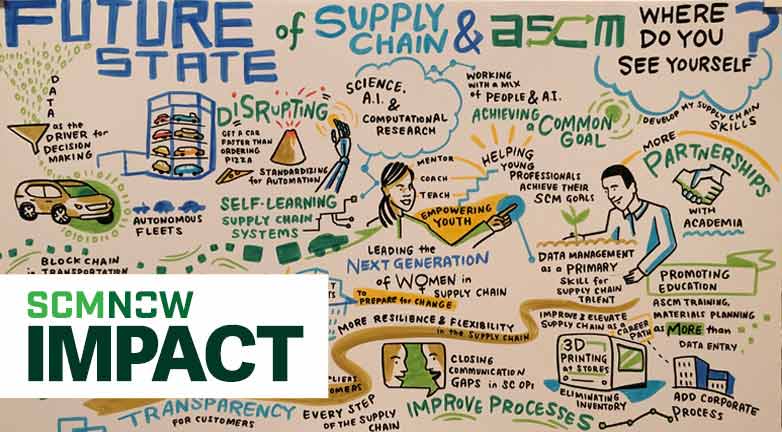 FUTURE STATE of SUPPLY CHAIN & ascm
WHERE
DO YOU
SEE YOURSELF?
DATA
as the
DRIVER for
DECISION
MAKING
DISRUPTING
GET A CAR
FASTER THAN
ORDERING
PIZZA
STANDARDIZING
for AUTOMATION
SCIENCE,
A.I. &
COMPUTATIONAL
RESEARCH
WORKING
WITH A MIX
of PEOPLE & A.I.
ACHIEVING
a COMMON
GOAL
DEVELOP MY SUPPLY CHAIN
SKILLS
MORE
PARTNERSHIPS
WITH
ACADEMIA
AUTONOMOUS
FLEETS
SELF-LEARNING
SUPPLY CHAIN
SYSTEMS
MENTOR
COACH
TEACH
EMPOWERING
YOUTH
HELPING
YOUNG
PROFESSIONALS
ACHIEVE THEIR
SCM GOALS
BLOCK CHAIN
in TRANSPORTATION
LEADING the
NEXT GENERATION
of WOMEN in
SUPPLY CHAIN
TO
PREPARE for CHANGE
DATA MANAGEMENT
as a PRIMARY
SKILL for
SUPPLY CHAIN
TALENT
PROMOTING
EDUCATION
ASCM TRAINING,
MATERIALS PLANNING
as MORE than
DATA ENTRY
MORE RESILIENCE & FLEXIBILITY
in the SUPPLY CHAIN
IMPROVE & ELEVATE
SUPPLY CHAIN as a
CAREER
PATH
CLOSING
COMMUNICATION
GAPS in SC OPS
3D
PRINTING
at STORES
ELIMINATING
INVENTORY
ADD CORPORATE
PROCESS
SCMNOW
IMPACT
TRANSPARENCY
FOR CUSTOMERS
EVERY STEP
OF THE SUPPLY
CHAIN
IMPROVE PROCESSES